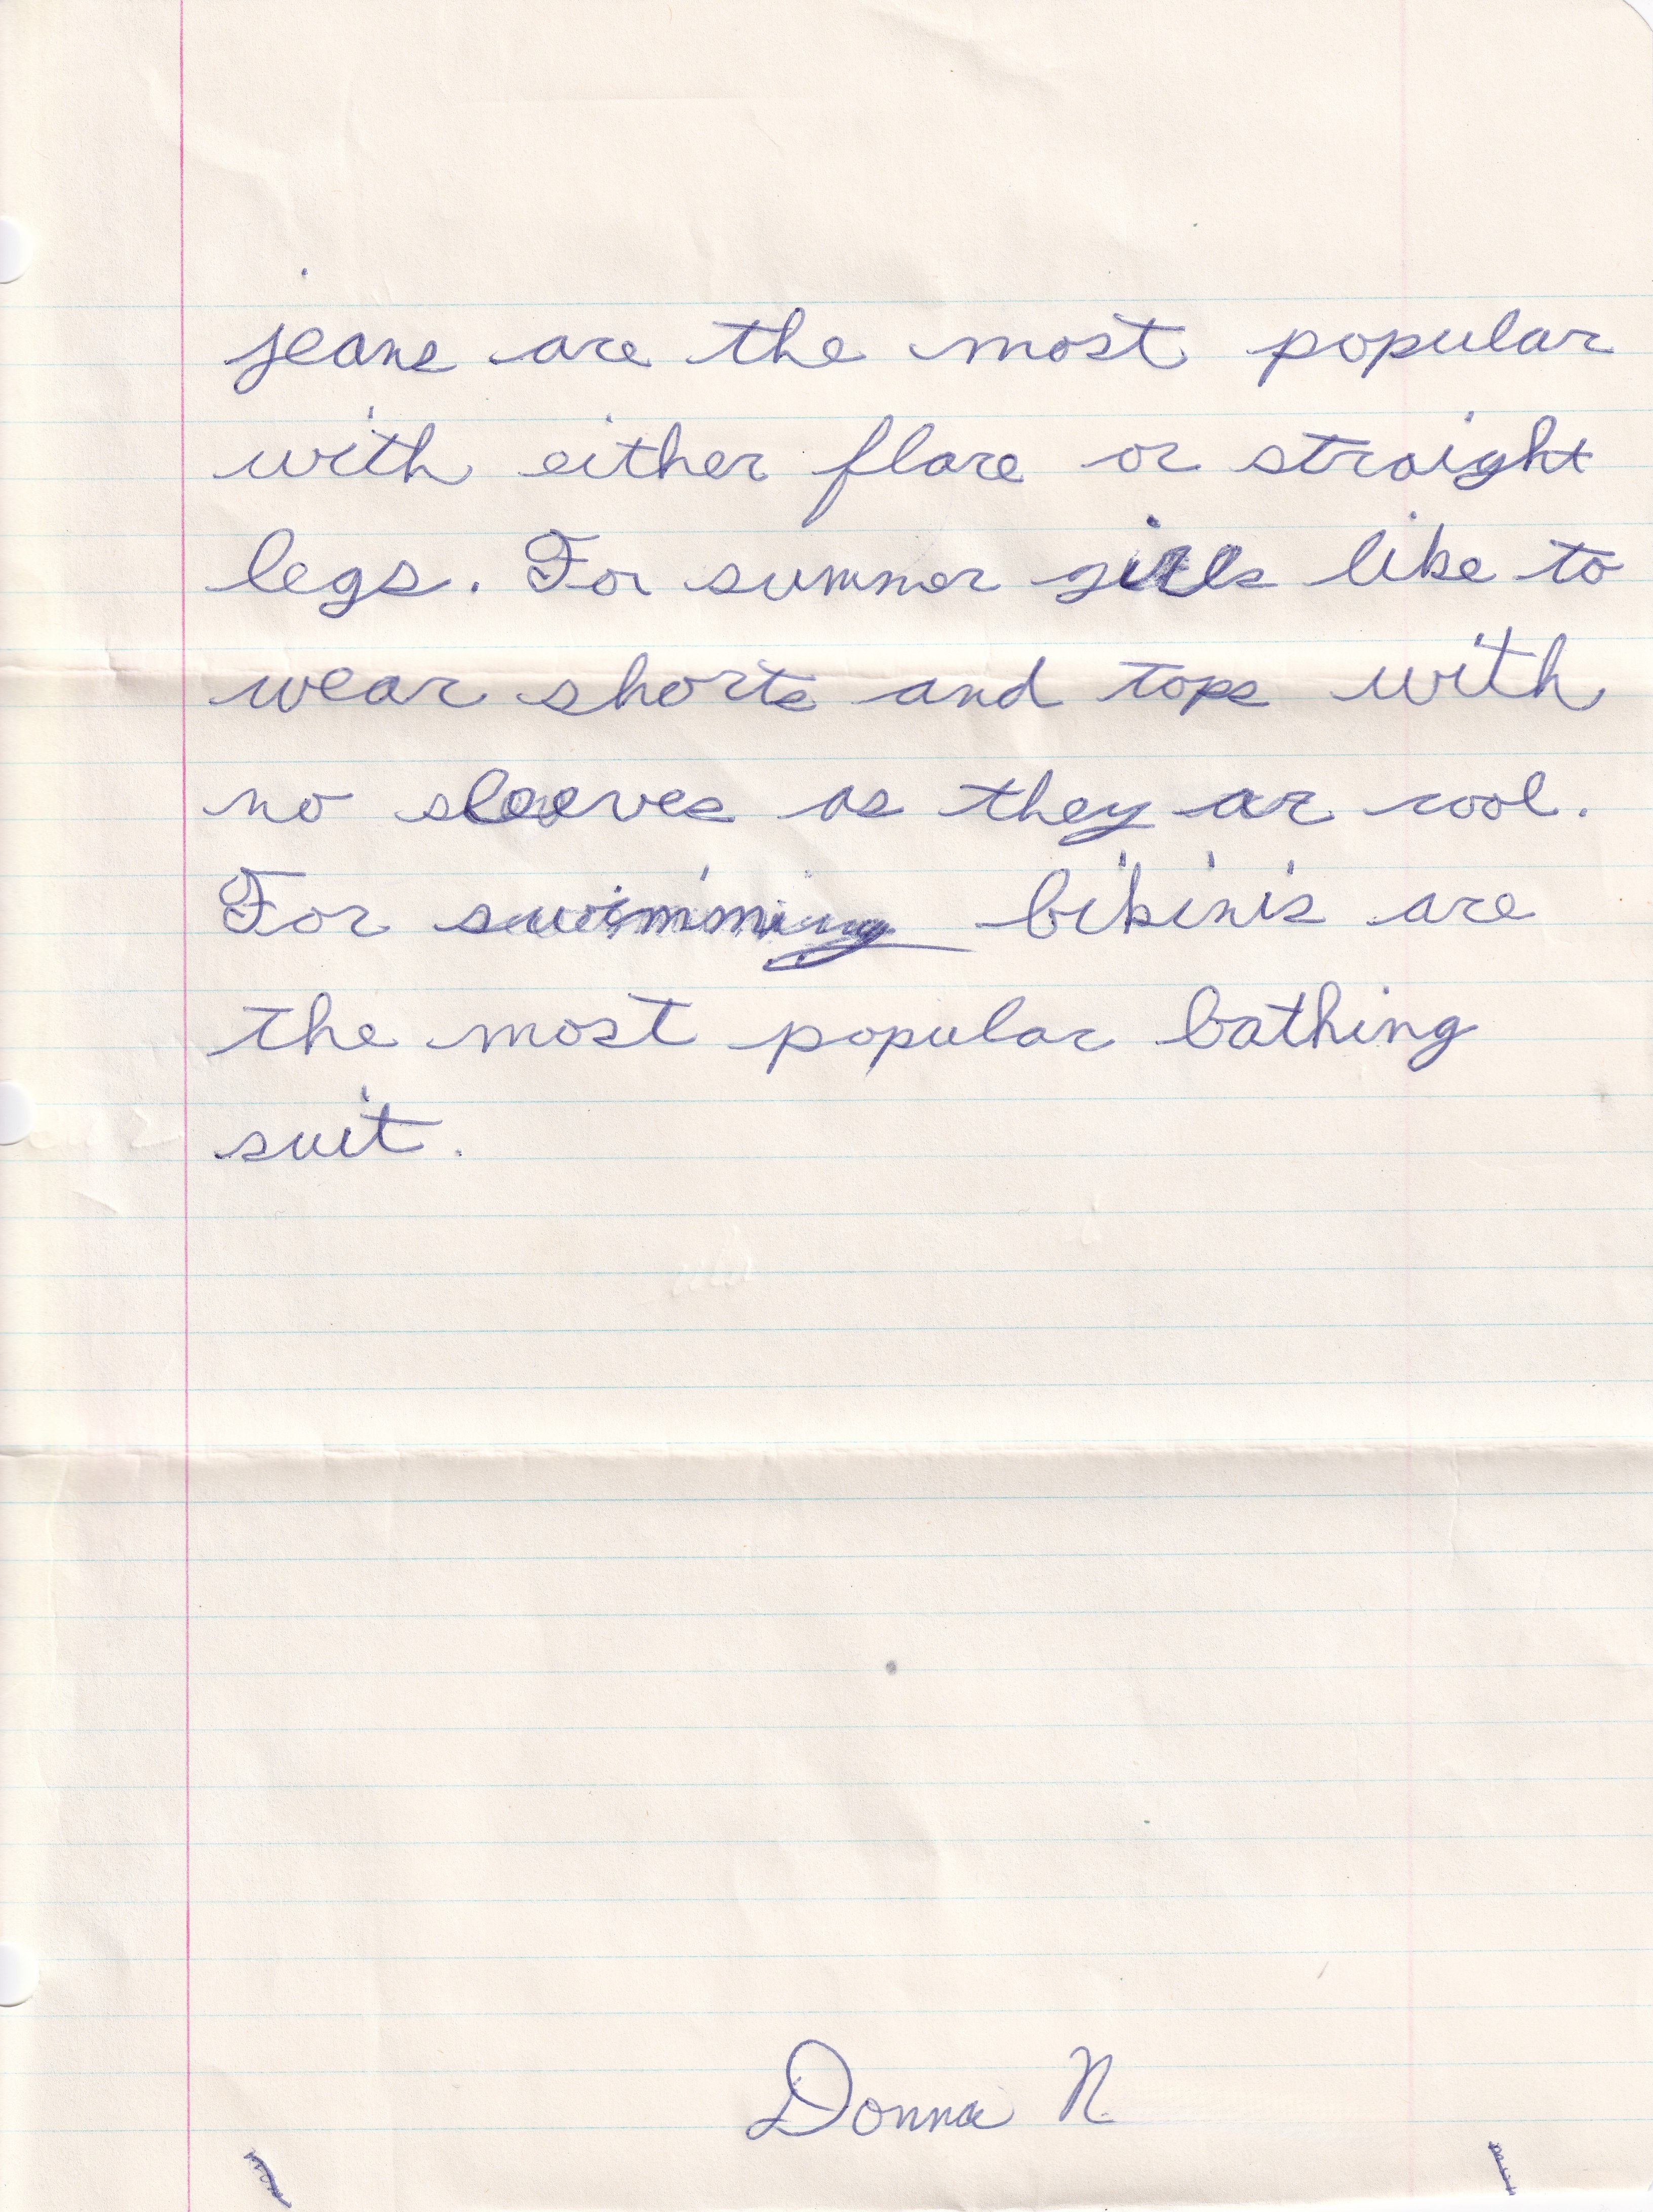 jeans are the most popular
with either flare or straight
legs. For summer girls like to
wear shorts and tops with
no sleeves as they ar cool.
For swimming bikinis are
the most popular bathing
suit.
Donna N.